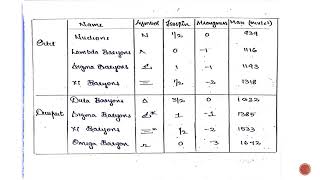 Name Symbol Isospin Strangness Mass (MeV/c²)
Octet Nucleons N 1/2 0 939
Lambda Baryons Λ 0 -1 1116
Sigma Baryons Σ 1 -1 1193
Xi Baryons Ξ 1/2 -2 1318
Decuplet Delta Baryons Δ 3/2 0 1232
Sigma Baryons Σ* 1 -1 1385
Xi Baryons Ξ* 1/2 -2 1533
Omega Baryon Ω 0 -3 1672